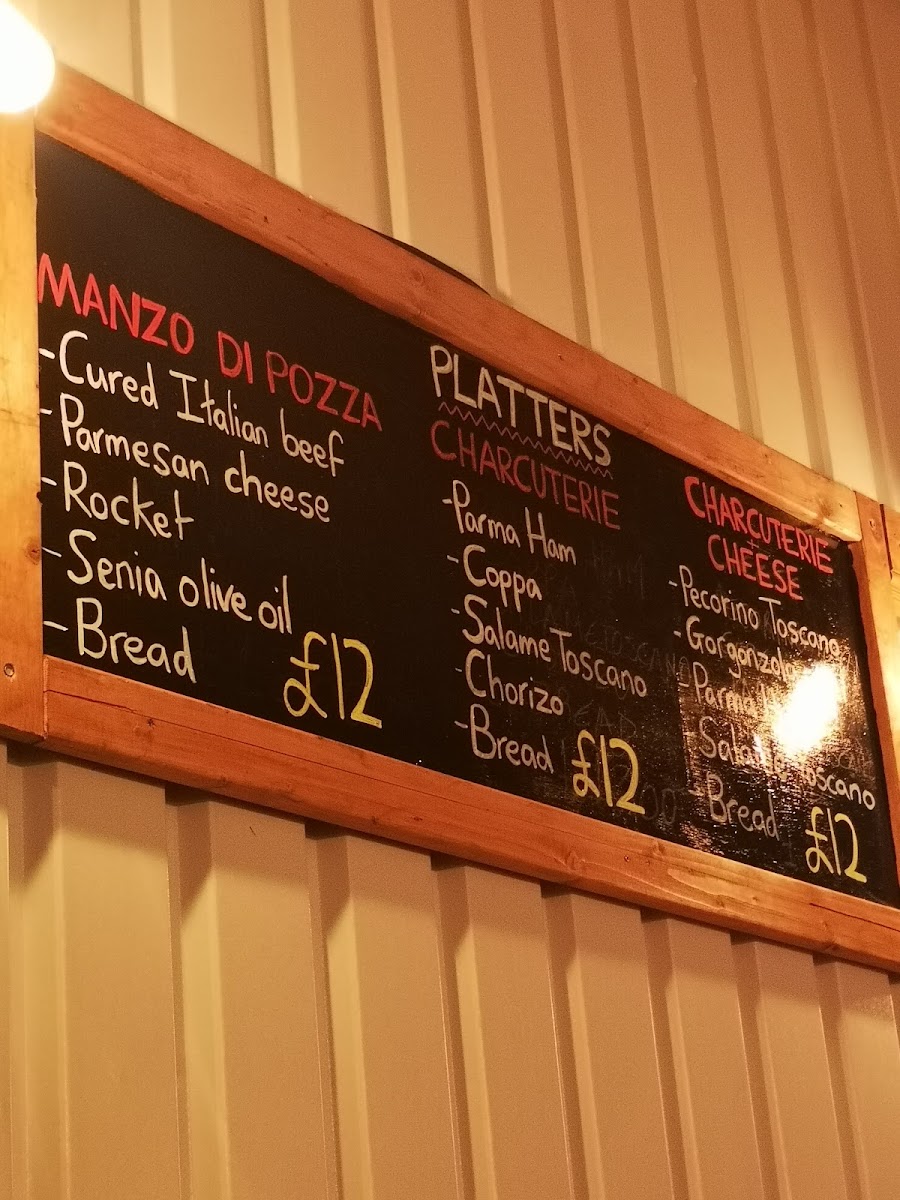 MANZO DI POZZA
-Cured Italian beef
-Parmesan cheese
-Rocket
-Senia olive oil
-Bread
£12
PLATTERS
CHARCUTERIE
-Parma Ham
-Coppa
-Salame Toscano
-Chorizo
-Bread
£12
CHARCUTERIE
+
CHEESE
-Pecorino Toscano
-Gorgonzola
-Parma
Toscano
-Bread
£12